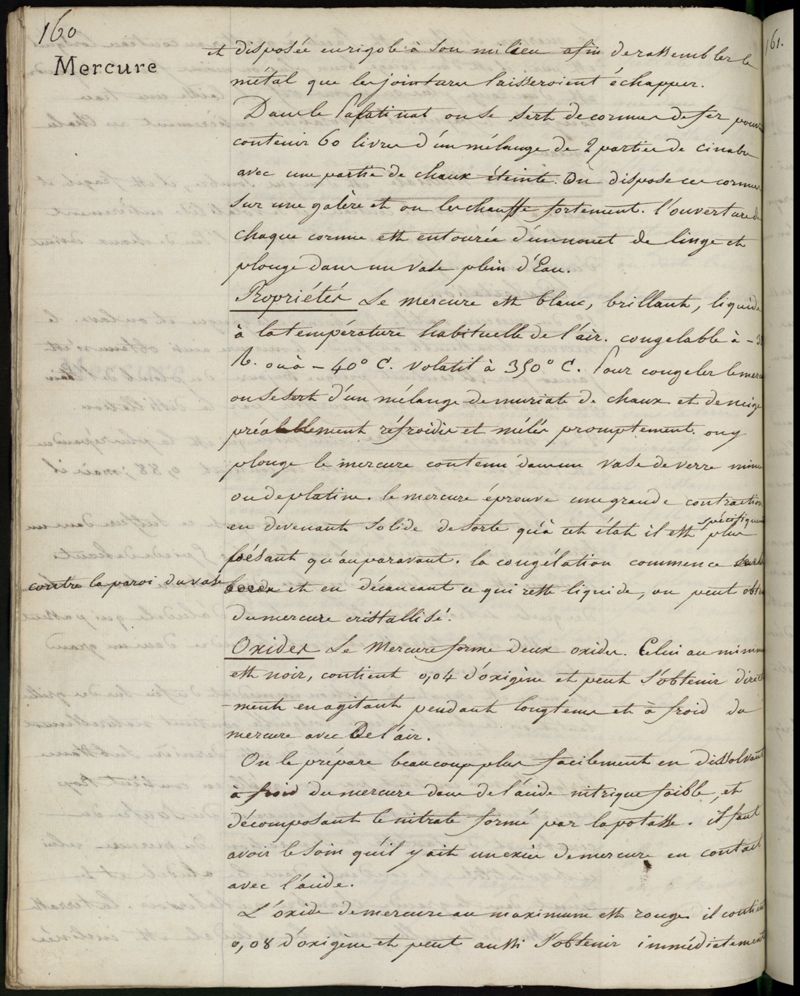 160
161.
Mercure
et disposée en rigole à son milieu afin de rassembler le
métal que les jointures laisseroient échapper.
Dans le Palatinat on se sert de cornues de fer pouvant
contenir 60 livres d'un mélange de 2 parties de cinabre
avec une partie de chaux éteinte. On dispose ces cornues
sur une galère et on les chauffe fortement. l'ouverture de
chaque cornue est entourée d'un nouet de linge et
plonge dans un vase plein d'Eau.
Propriétés Le mercure est blanc, brillant, liquide
à la température habituelle de l'air. congelable à - 32
R. ou à - 40° C. volatil à 350° C. Pour congeler le mercure
on se sert d'un mélange de muriate de chaux et de neige
préalablement refroidis et mêlés promptement. on y
plonge le mercure contenu dans un vase de verre mince
ou de platine. le mercure éprouve une grande contraction
en devenant solide de sorte qu'à cet état il est spécifiquement plus
pésant qu'auparavant. la congélation commence
contre la paroi du vase et en décantant ce qui reste liquide, on peut obtenir
du mercure cristallisé.
Oxides Le Mercure forme deux oxides. Celui au minimum
est noir, contient 0,04 d'oxigène et peut s'obtenir directe
-ment en agitant pendant longtems et à froid du
mercure avec De l'air.
On le prépare beaucoup plus facilement en dissolvant
à froid du mercure dans de l'acide nitrique foible, et
décomposant le nitrate formé par la potasse. il faut
avoir le soin qu'il y ait un excès de mercure en contact
avec l'acide.
L'oxide de mercure au maximum est rouge il contient
0,08 d'oxigène et peut aussi s'obtenir immédiatement